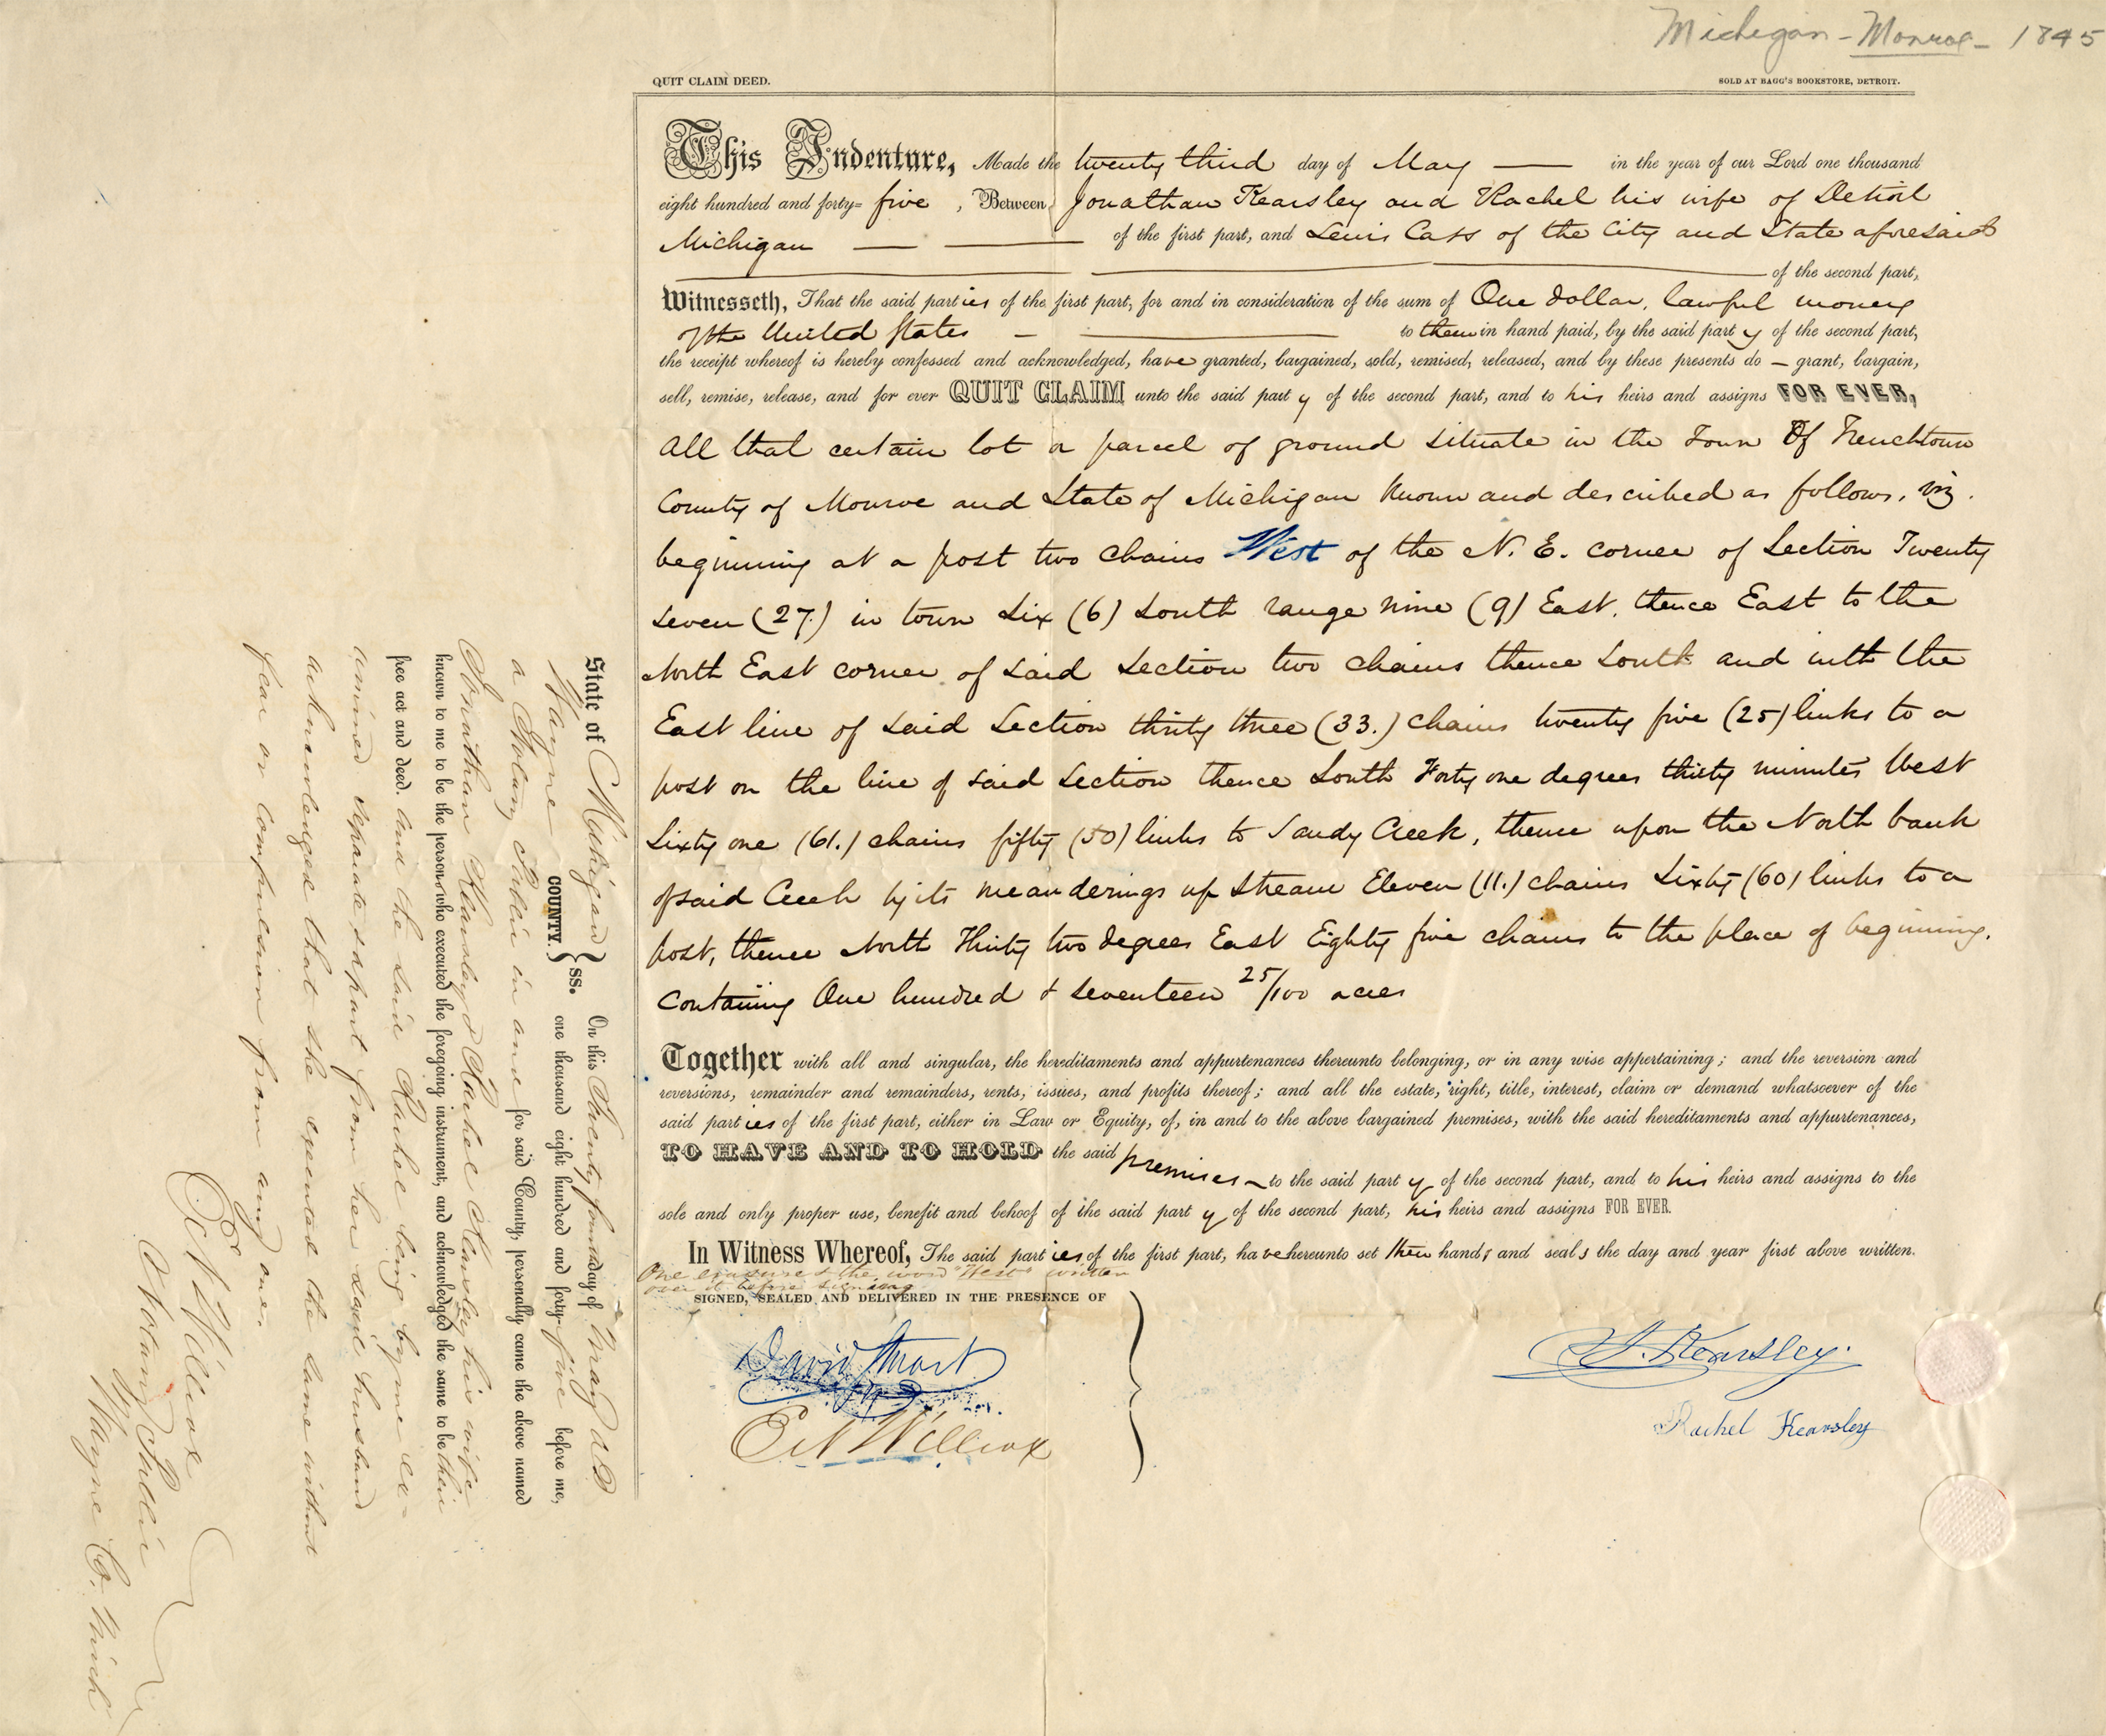 Michigan - Monroe - 1845
QUIT CLAIM DEED. SOLD AT BAGG'S BOOKSTORE, DETROIT.
This Indenture, Made the twenty third day of May in the year of our Lord one thousand
eight hundred and forty= five , Between Jonathan Kearsley and Rachel his wife of Detroit
Michigan of the first part, and Lewis Cass of the City and State aforesaid
of the second part,
Witnesseth, That the said parties of the first part, for and in consideration of the sum of One dollar, lawful money
of the United States to them in hand paid, by the said party of the second part,
the receipt whereof is hereby confessed and acknowledged, have granted, bargained, sold, remised, released, and by these presents do – grant, bargain,
sell, remise, release, and for ever QUIT CLAIM unto the said party of the second part, and to his heirs and assigns FOR EVER,
All that certain lot or parcel of ground situate in the Town Of Frenchtown
County of Monroe and State of Michigan known and described as follows, viz.
beginning at a post two chains West of the N. E. corner of Section Twenty
seven (27) in town Six (6) South range nine (9) East, thence East to the
North East corner of said section two chains thence South and with the
East line of said Section thirty three (33.) chains twenty five (25) links to a
post on the line of said section thence South Forty one degrees thirty minutes West
Sixty one (61.) chains fifty (50) links to Sandy Creek, thence upon the North bank
of said Creek by its meanderings up stream Eleven (11.) chains Sixty (60) links to a
post, thence North Thirty two degrees East Eighty five chains to the place of beginning.
Containing One hundred & seventeen 25/100 acres
Together with all and singular, the hereditaments and appurtenances thereunto belonging, or in any wise appertaining; and the reversion and
reversions, remainder and remainders, rents, issues, and profits thereof; and all the estate, right, title, interest, claim or demand whatsoever of the
said parties of the first part, either in Law or Equity, of, in and to the above bargained premises, with the said hereditaments and appurtenances,
TO HAVE AND TO HOLD the said premises to the said party of the second part, and to his heirs and assigns to the
sole and only proper use, benefit and behoof of the said party of the second part, his heirs and assigns FOR EVER.
In Witness Whereof, The said parties of the first part, have hereunto set their hands and seals the day and year first above written.
One erasure & the word "West" written
over it before signing
SIGNED, SEALED AND DELIVERED IN THE PRESENCE OF
David Stuart
E N Willcox
J. Kearsley.
Rachel Kearsley
State of Michigan } ss. On this Twenty fourth day of May AD
Wayne COUNTY. one thousand eight hundred and forty- five before me,
a Notary Public in and for said County, personally came the above named
Jonathan Kearsley & Rachel Kearsley his wife
known to me to be the persons who executed the foregoing instrument, and acknowledged the same to be their
free act and deed. And the said Rachel being by me ex-
amined separate & apart from her said husband
acknowledged that she executed the same without
fear or compulsion from any one.
E N Willcox
Notary Public
Wayne Co. Mich